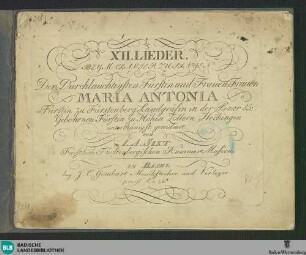 XII. LIEDER.
BEYM CLAVIER ZU SINGEN
Der Durchlauchtigsten Fürstin und Frauen Frauen
MARIA ANTONIA
Fürstin zu Fürstenberg Landgräfin in der
Gebohrnen Fürstin zu Hohen Zollern Hechingen
unterthänigst gewidmet
von
SIXT
Fürstlich Fürstenbergischen Kammer Musicus
IN BASEL
by J. C. Gombart Musickstecher und Verleger
BLB BADISCHE
LANDESBIBLIOTHEK
Baden-Württemberg